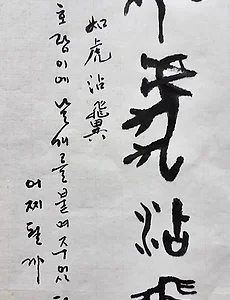 虎沾
如虎沾翼
호랑이에 날개를 붙여주었
어찌될까